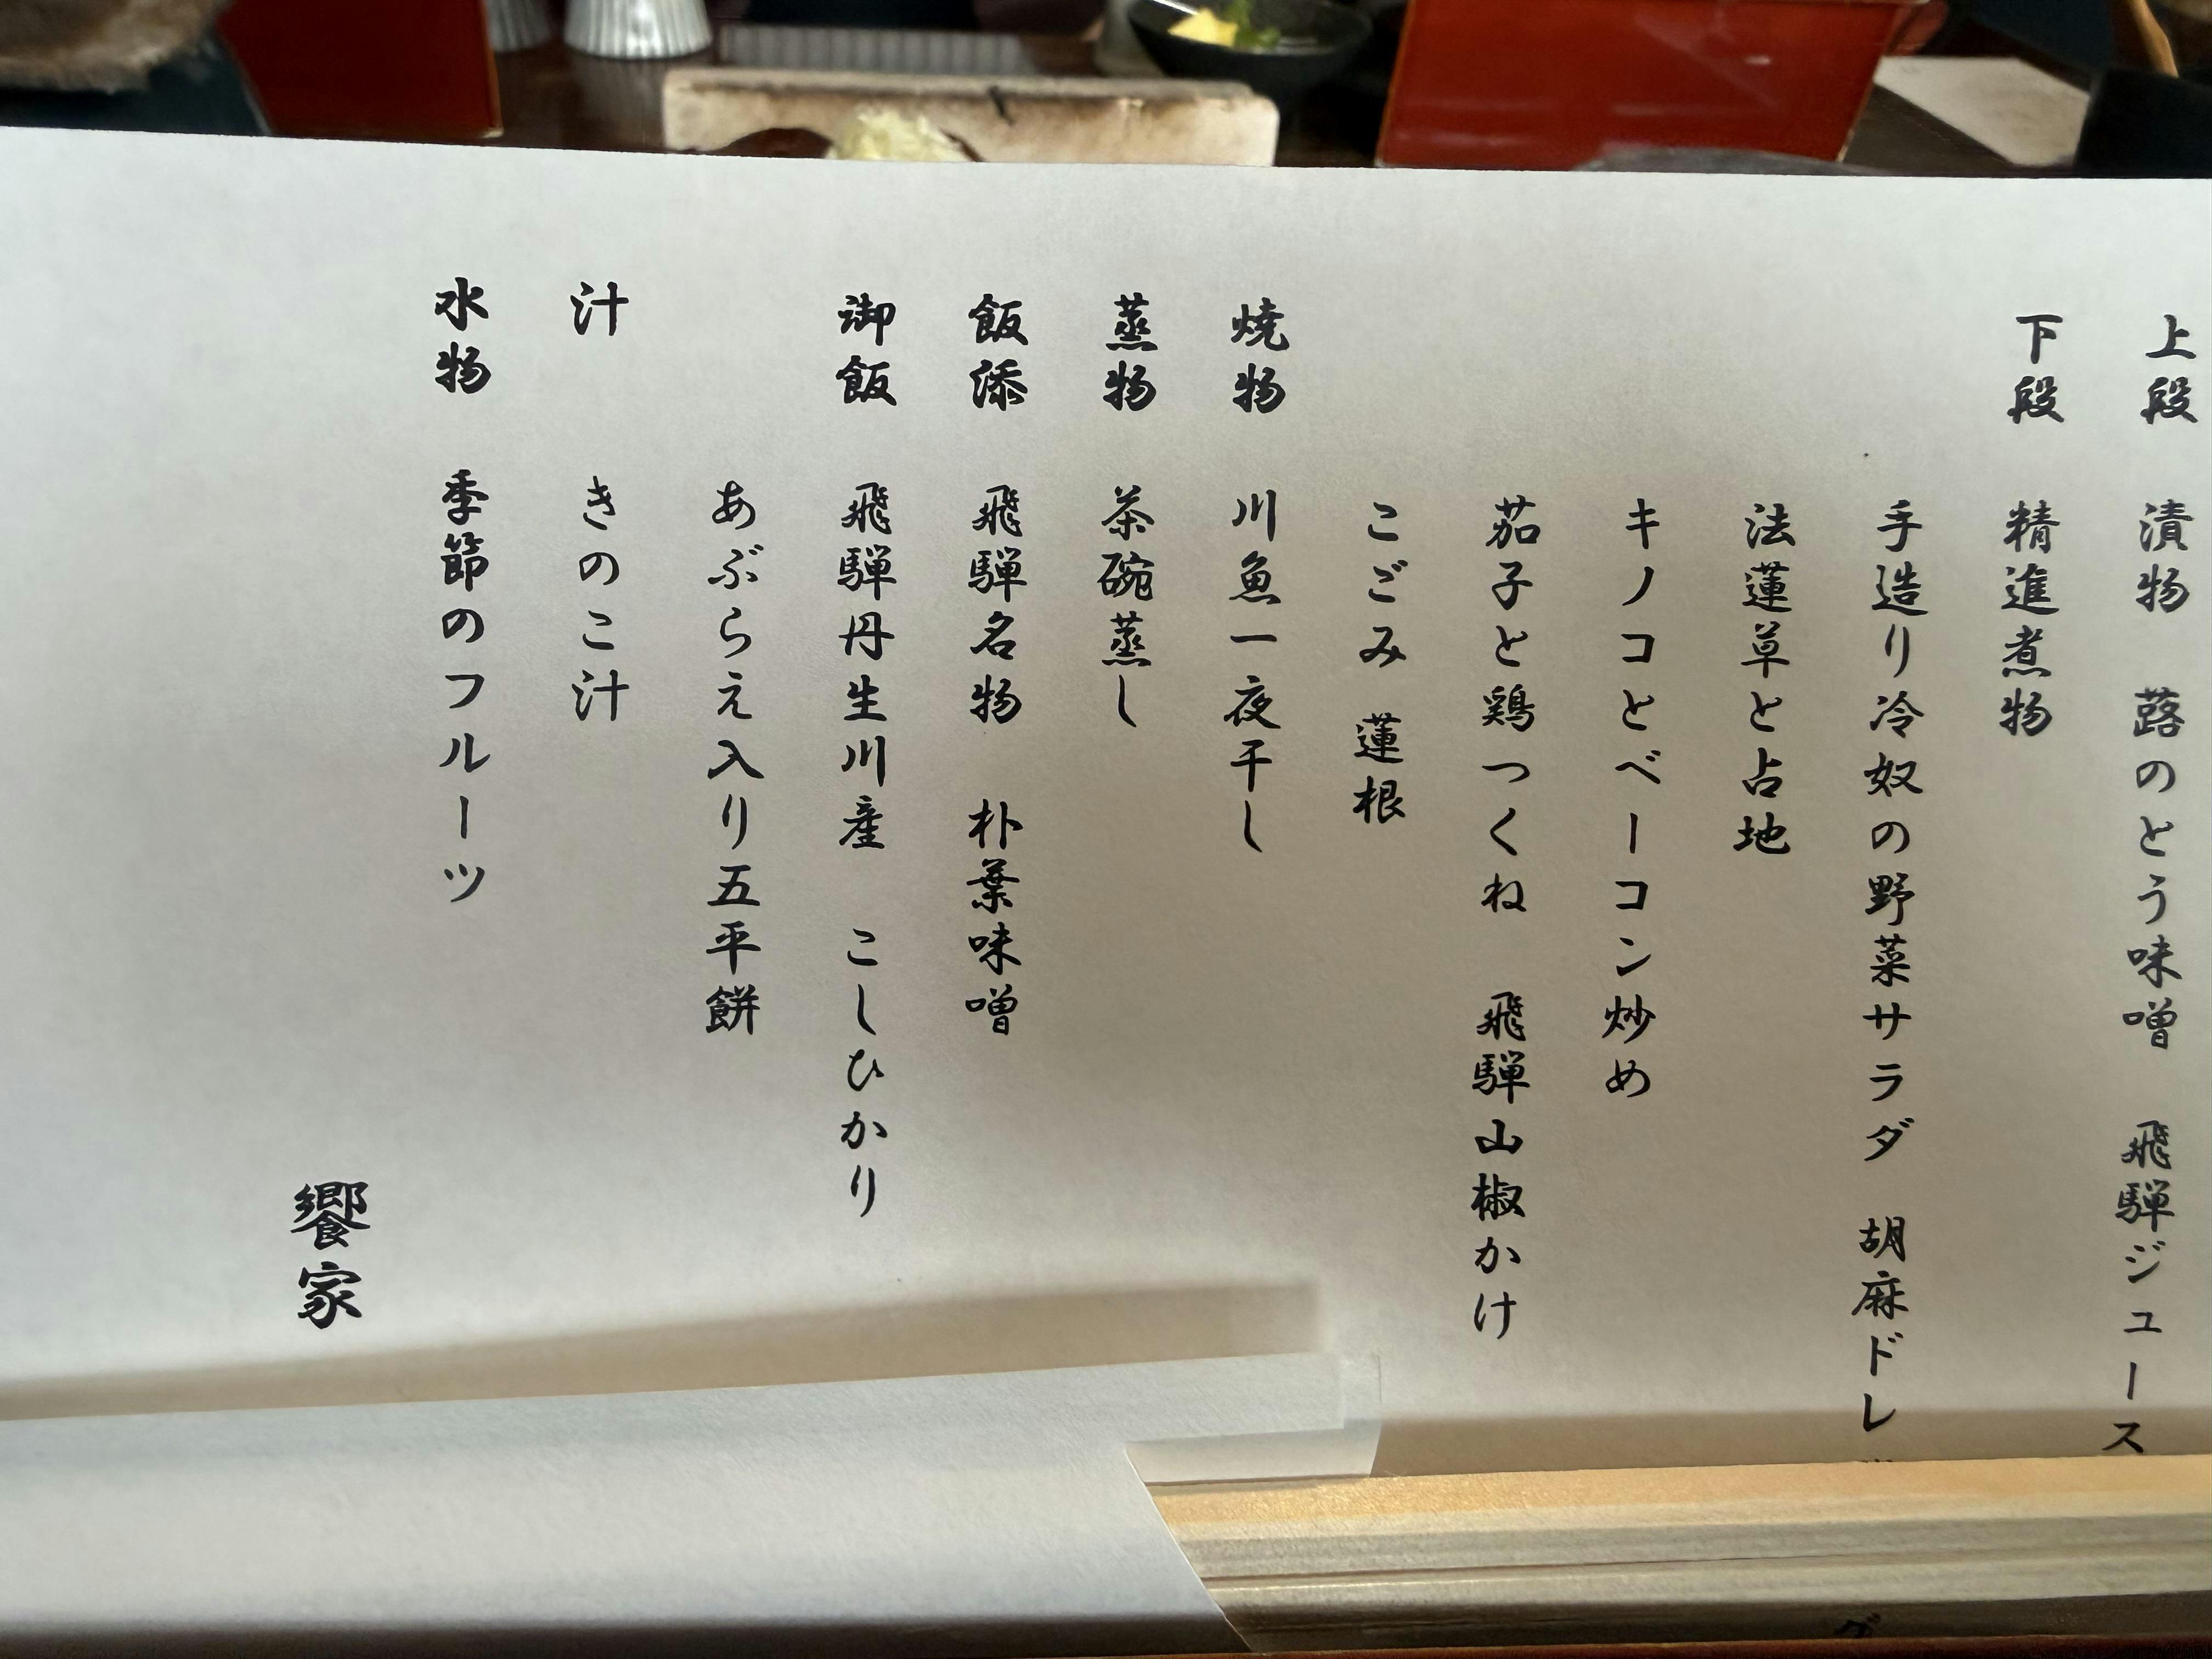 上段 漬物 蕗のとう味噌 飛騨ジュース
下段 精進煮物
手造り冷奴の野菜サラダ 胡麻ドレ
法蓮草と占地
キノコとベーコン炒め
茄子と鶏つくね 飛騨山椒かけ
こごみ 蓮根
焼物 川魚一夜干し
蒸物 茶碗蒸し
飯添 飛騨名物 朴葉味噌
御飯 飛騨丹生川産 こしひかり
あぶらえ入り五平餅
汁 きのこ汁
水物 季節のフルーツ
饗家